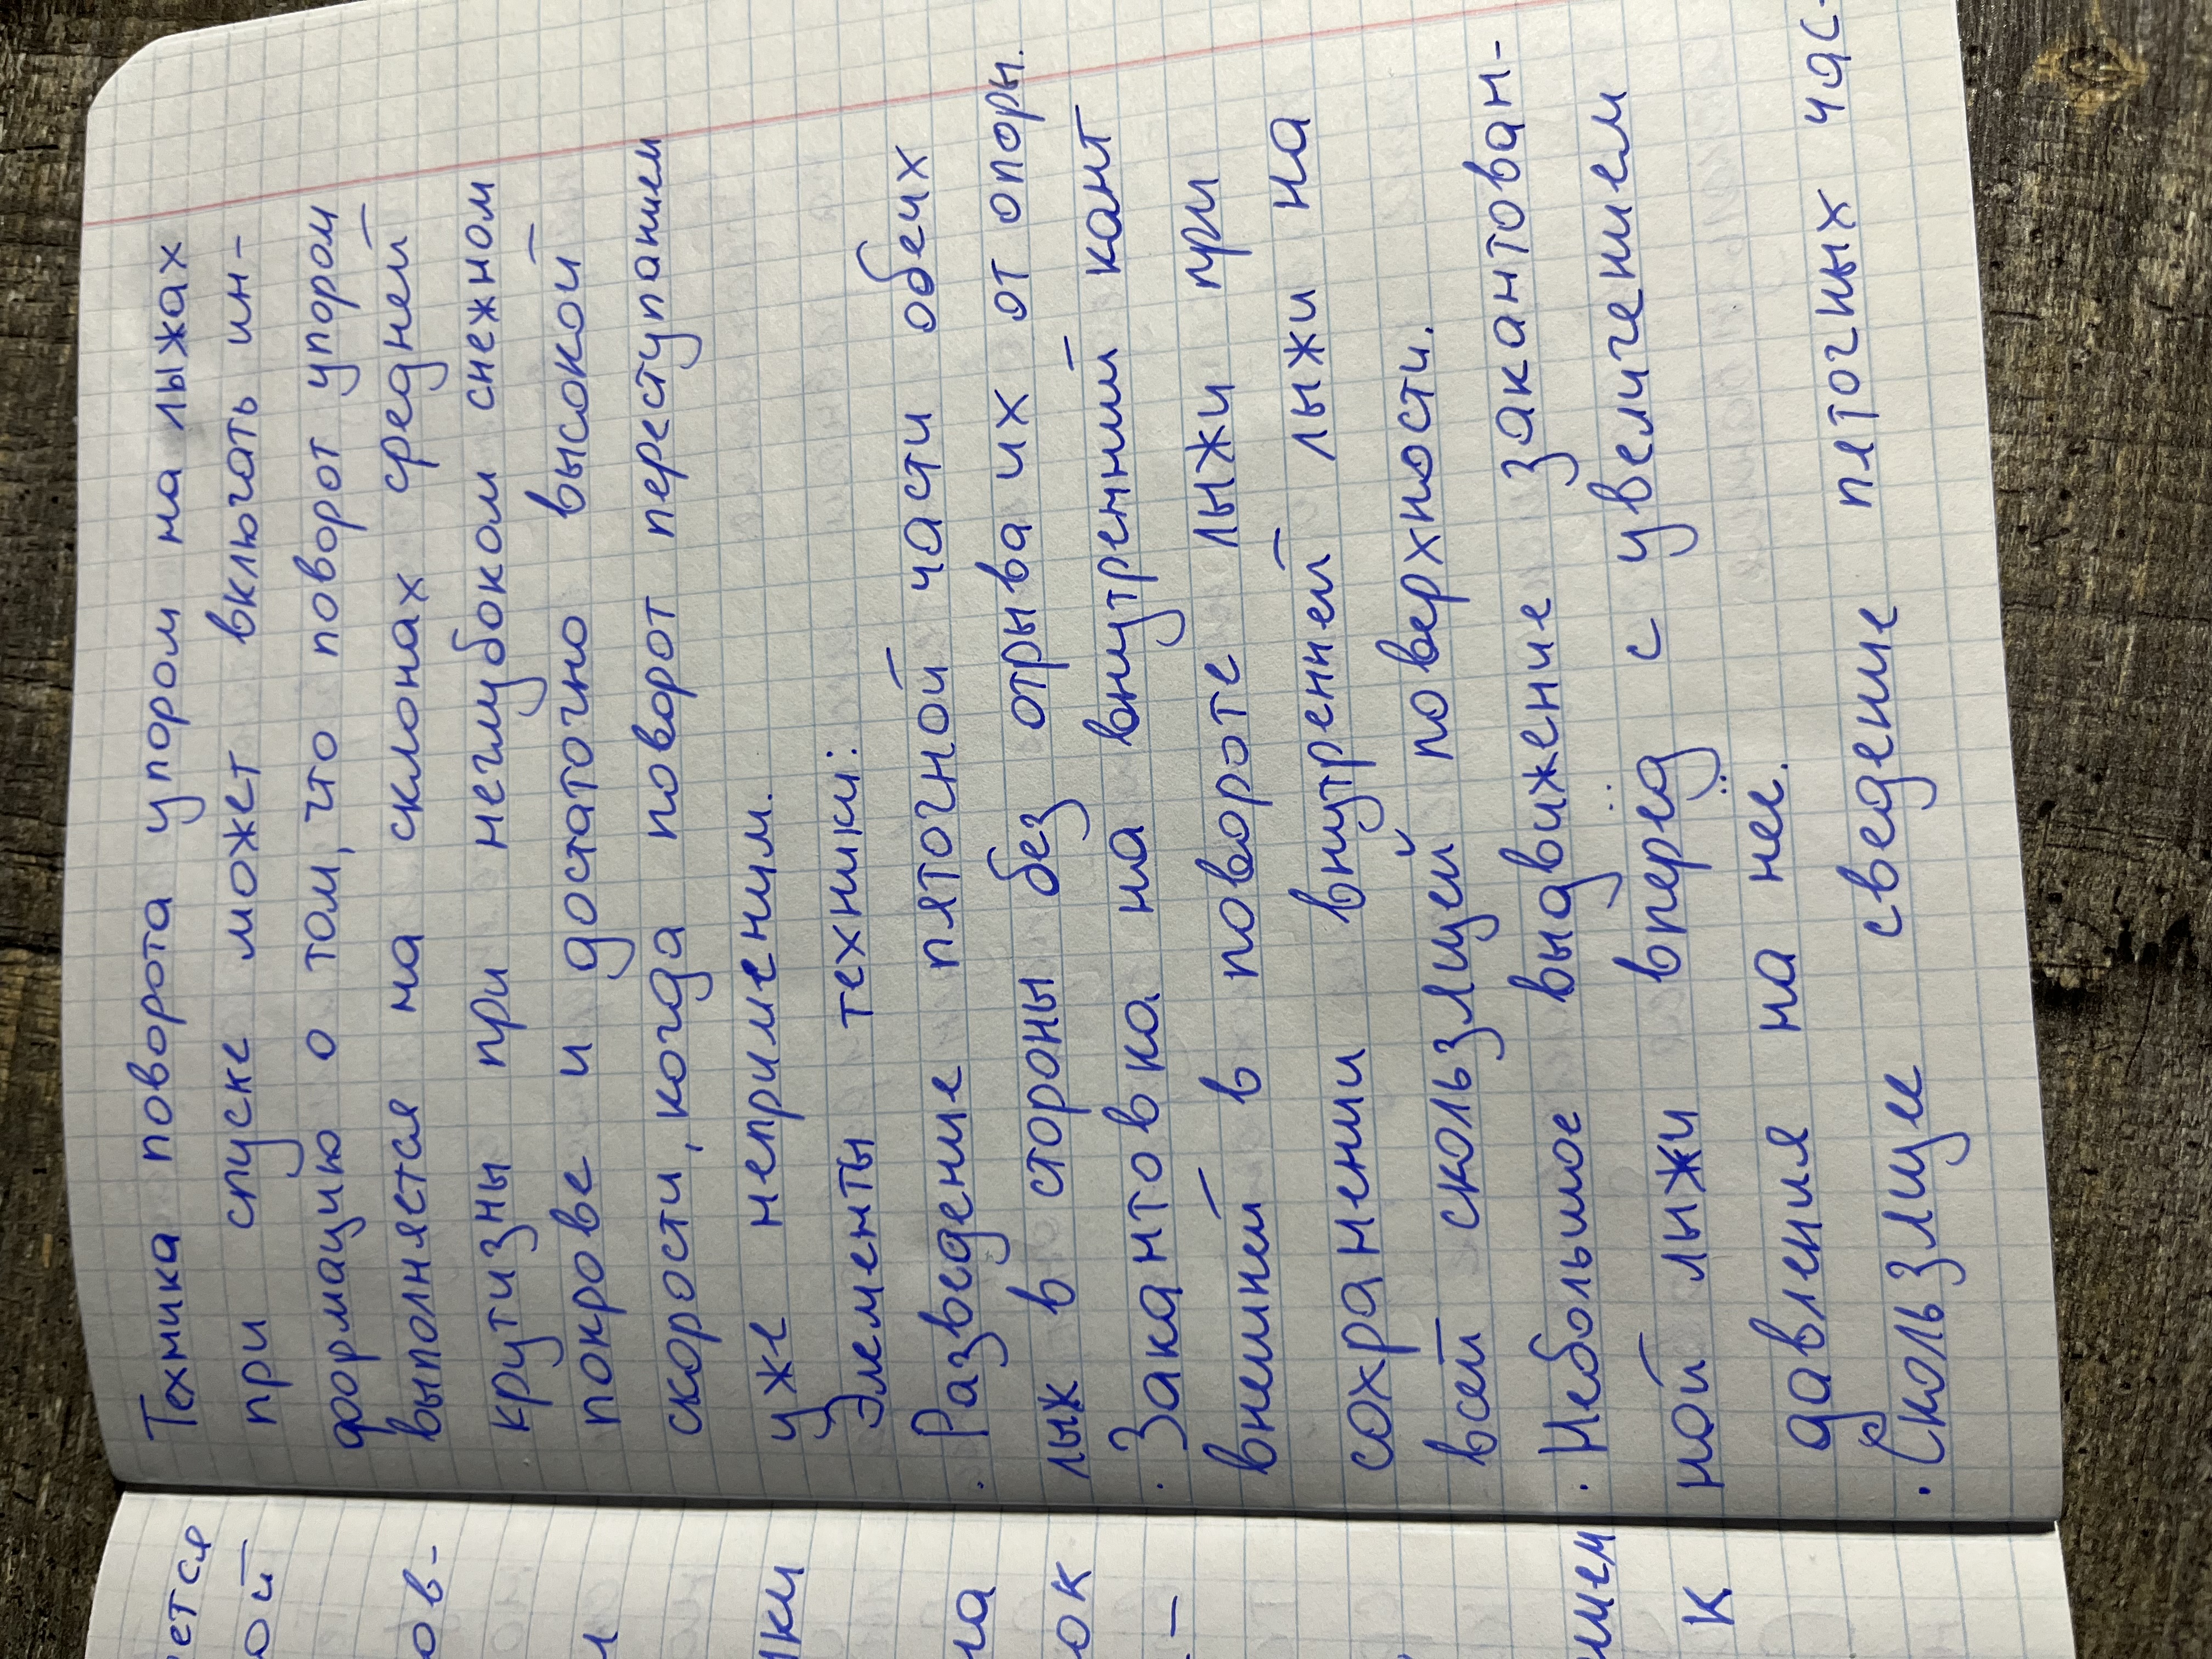 Техника поворота упором на лыжах
при спуске может включать ин-
формацию о том, что поворот упором
выполняется на склонах средней
крутизны при неглубоком снежном
покрове и достаточно высокой
скорости, когда поворот переступанием
уже неприменим.
Элементы техники:
· Разведение пяточной части обеих
лыж в стороны без отрыва их от опоры.
· Закантовка на внутренний кант
внешней в повороте лыжи при
сохранении внутренней лыжи на
всей скользящей поверхности.
· Небольшое выдвижение закантован-
ной лыжи вперёд с увеличением
давления на неё.
· Скользящее сведение пяточных час-
ется
ой
ов-
ки
на
ок
-
нием
к